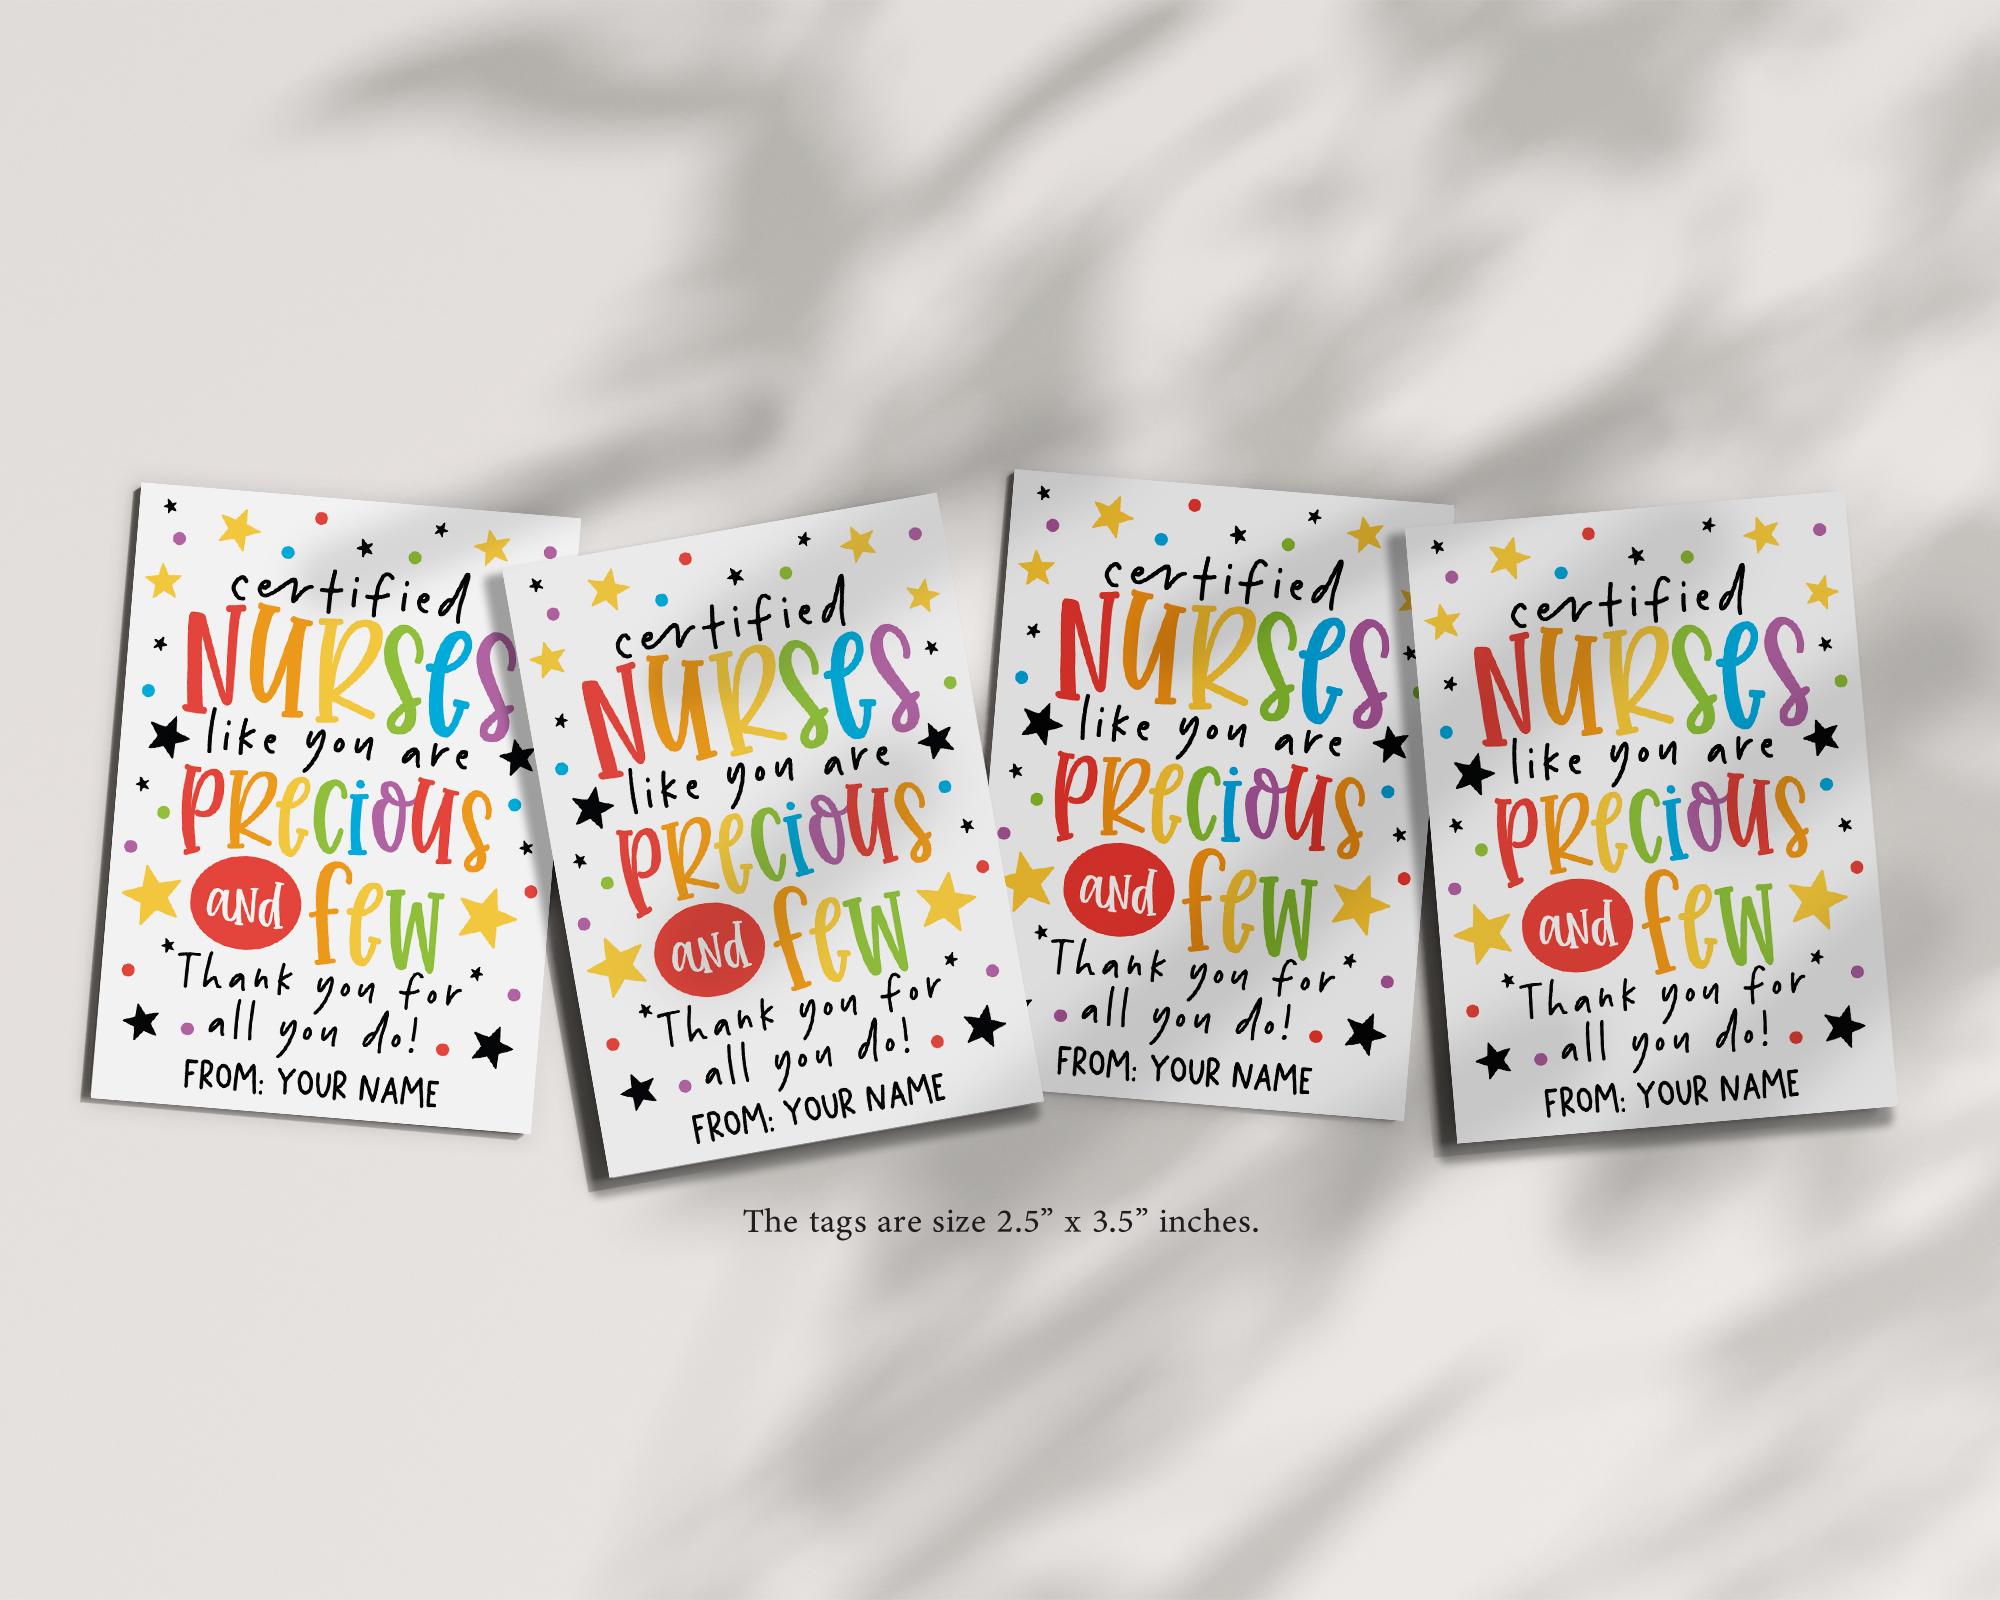 certified
NURSES
like you are
PRECIOUS
and few
Thank you for
all you do!
FROM: YOUR NAME
certified
NURSES
like you are
PRECIOUS
and few
Thank you for
all you do!
FROM: YOUR NAME
certified
NURSES
like you are
PRECIOUS
and few
Thank you for
all you do!
FROM: YOUR NAME
certified
NURSES
like you are
PRECIOUS
and few
Thank you for
all you do!
FROM: YOUR NAME
The tags are size 2.5” x 3.5” inches.